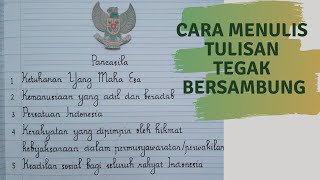 CARA MENULIS
TULISAN
TEGAK
BERSAMBUNG
Pancasila
1 Ketuhanan Yang Maha Esa
2 Kemanusiaan yang adil dan beradab
3 Persatuan Indonesia
4 Kerakyatan yang dipimpin oleh hikmat
kebijaksanaan dalam permusyawaratan/perwakilan
5 Keadilan sosial bagi seluruh rakyat Indonesia